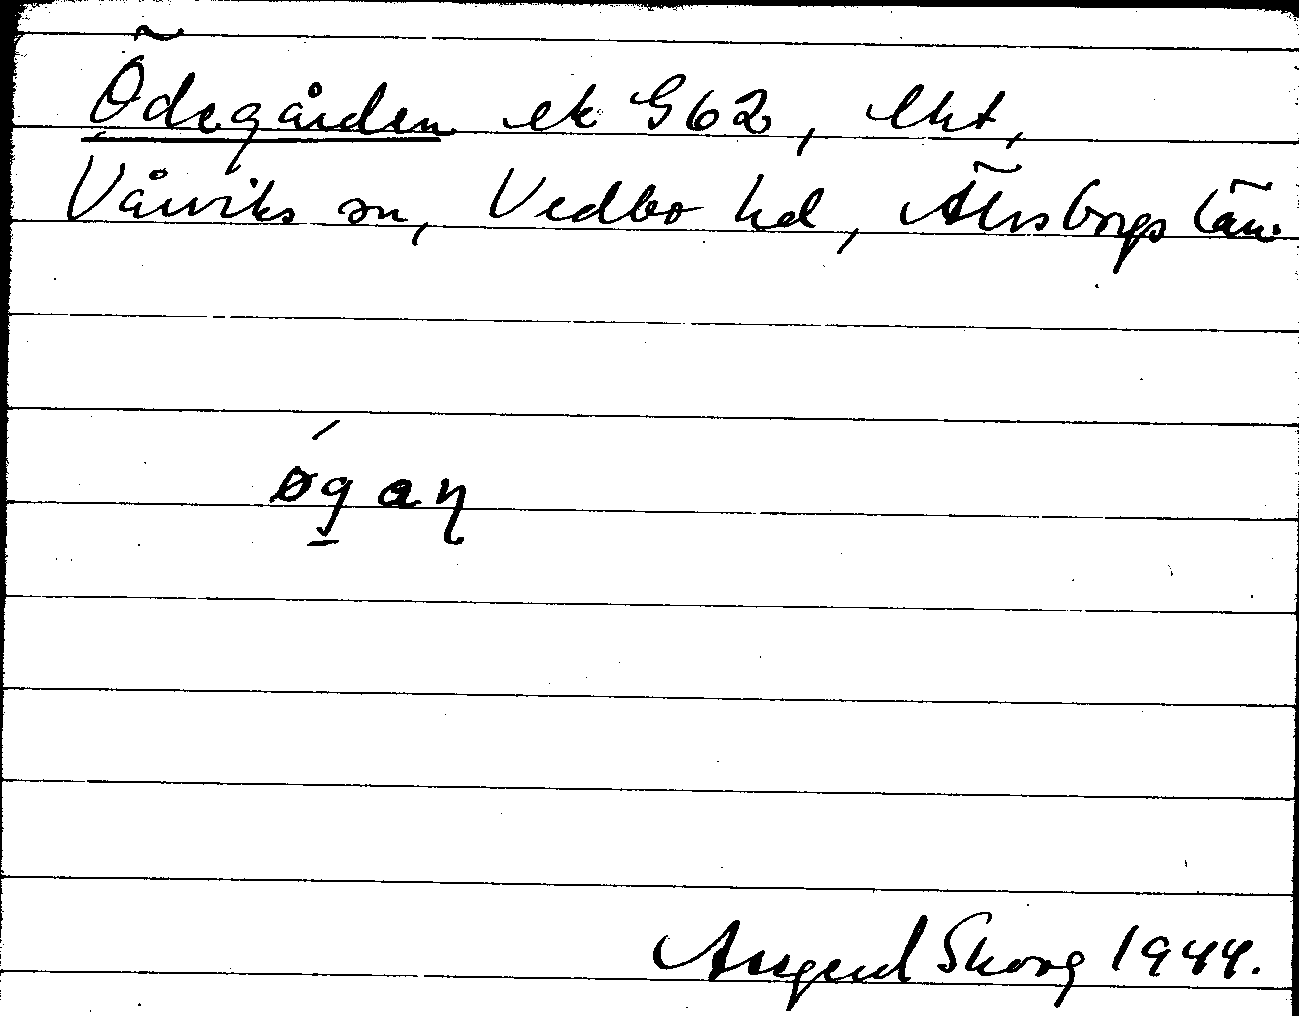 Ödegården ek G62, Ekt,
Vårviks sn, Vedbo hd, Älvsborgs län.
øgaɳ
Assgerd Skoog 1944.